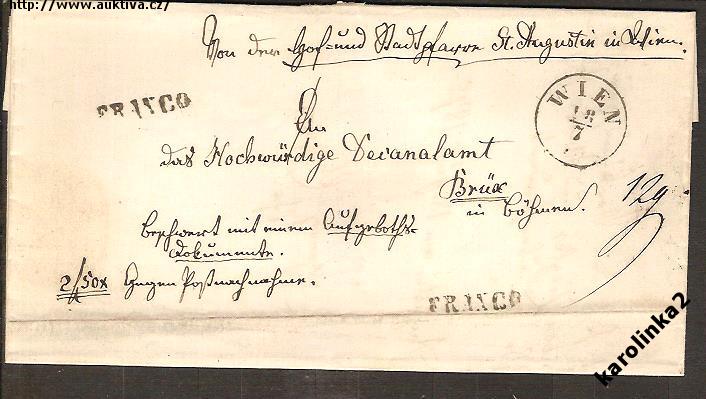 http://www.auktiva.cz/
Von der Hof- und Stadtpfarre St. Augustin in Wien.
FRANCO
WIEN
18/7
An
das Hochwürdige Decanalamt
Brüx
in Böhmen.
129
beschwert mit einem Aufgeboths-
Dokumente.
2/50x Gegen Postnachnahme.
FRANCO
karolinka2